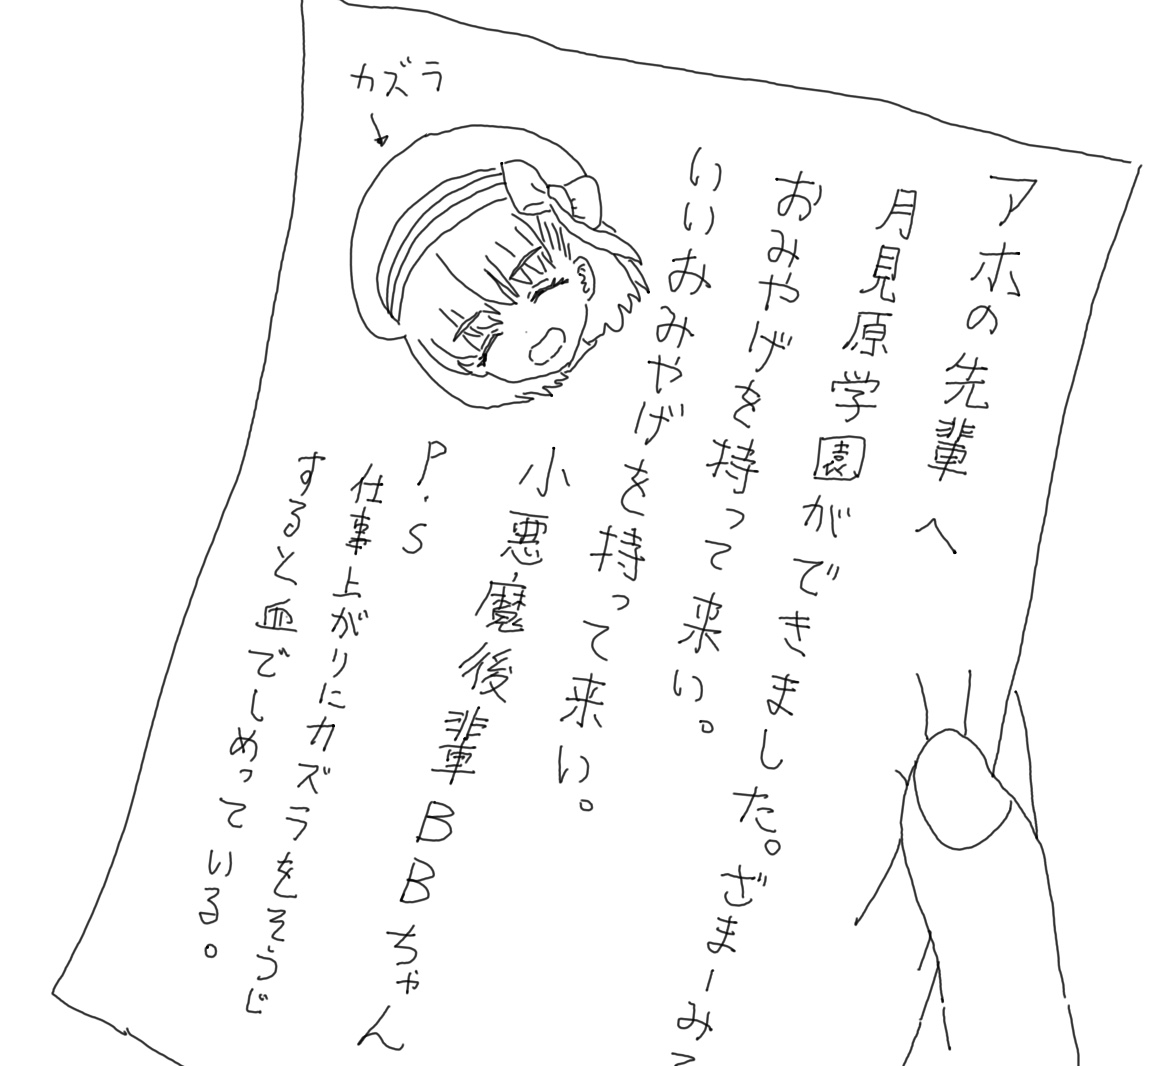 アホの先輩へ
月見原学園ができました。ざまーみ
おみやげを持って来い。
いいおみやげを持って来い。
小悪魔後輩BBちゃん
P.S
仕事上がりにカズラをそうじ
すると血でしめっている。
カズラ